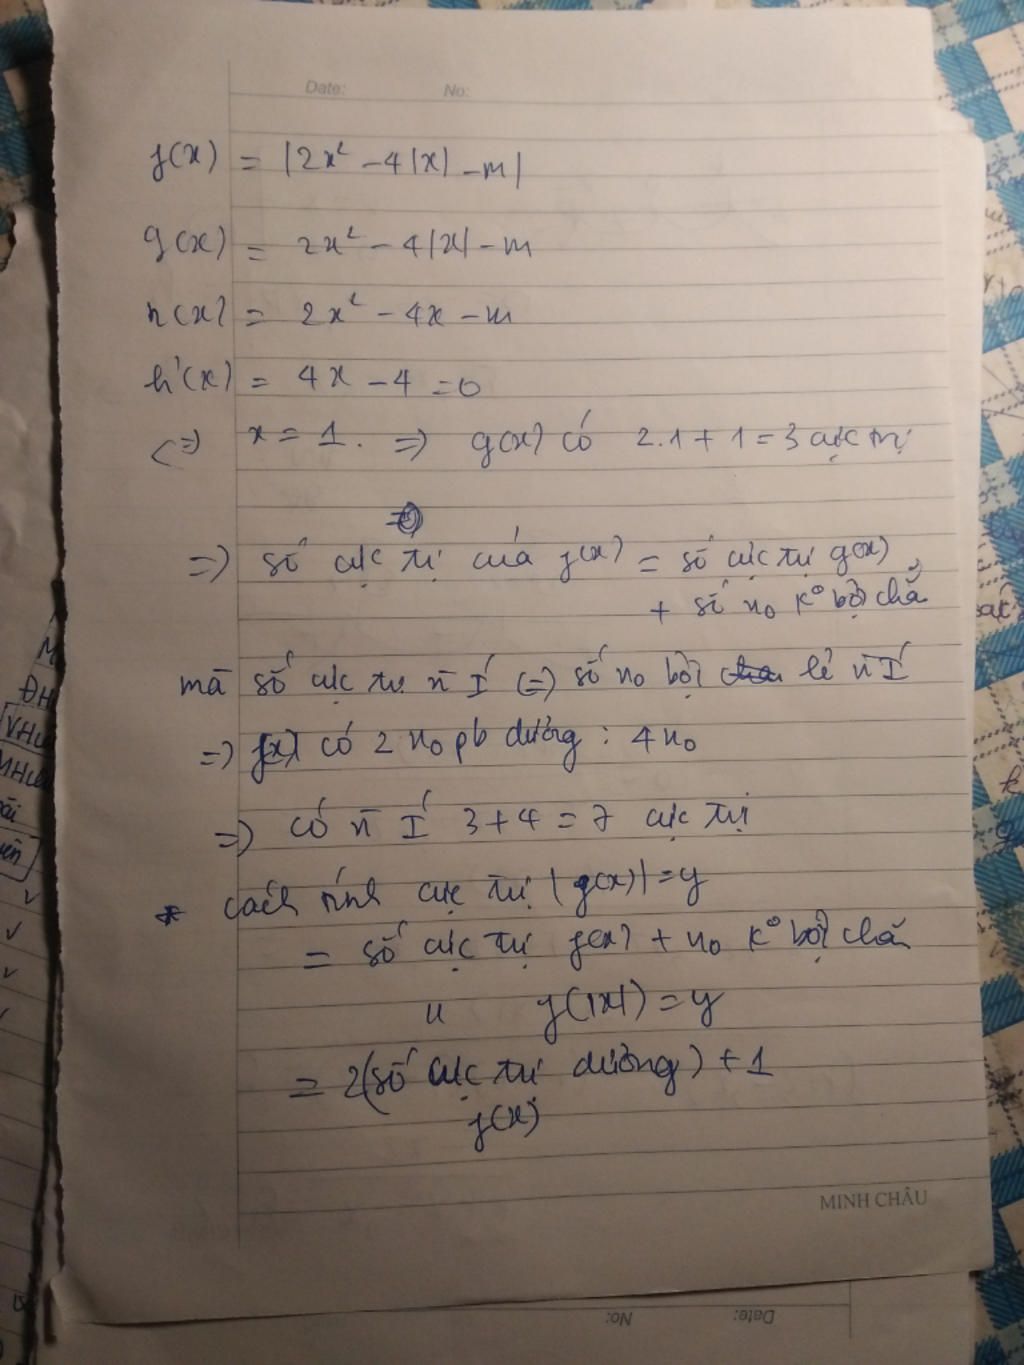 Date: No:
f(x) = |2x² - 4|x| - m|
g(x) = 2x² - 4|x| - m
h(x) = 2x² - 4x - m
h'(x) = 4x - 4 = 0
<=> x = 1. => g(x) có 2.1 + 1 = 3 cực trị
=> số cực trị của f(x) = số cực trị g(x)
+ số n₀ k° bội chẵ
mà số cực trị n I <=> số n₀ bội lẻ n I
=> f(x) có 2 n₀ pb dương : 4 n₀
=> có n I 3 + 4 = 7 cực trị
* cách tính cực trị |g(x)| = y
= số cực trị f(x) + n₀ k° bội chẵ
u f(|x|) = y
= 2(số cực trị dương) + 1
f(x)
MINH CHÂU
Date: No: